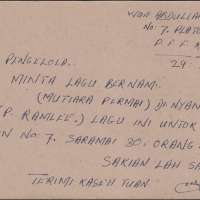 WAN ABDULLAH
No: 7. PLATO
P. F. F.
29
PENGELOLA.
MINTA LAGU BERNAMA.
(MUTIARA PERMAI) DINYAN
(P. RAMLEE.) LAGU INI UNTOK
N No: 7. SARAMAI 30. ORANG.
SAKIAN LAH SA
TERIMI KASEH TUAN